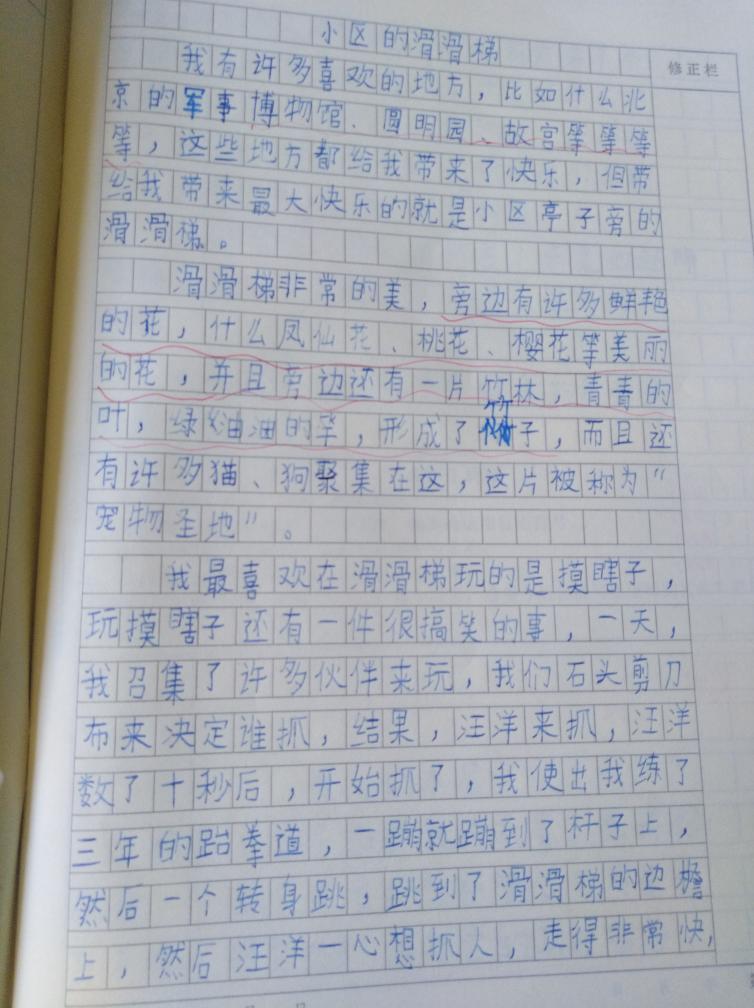 小区的滑滑梯
修正栏
我有许多喜欢的地方，比如什么北
京的军事博物馆、圆明园、故宫等等等
等，这些地方都给我带来了快乐，但带
给我带来最大快乐的就是小区亭子旁的
滑滑梯。
滑滑梯非常的美，旁边有许多鲜艳
的花，什么凤仙花、桃花、樱花等美丽
的花，并且旁边还有一片竹林，青青的
叶，绿油油的竿，形成了竹子，而且还
有许多猫、狗聚集在这，这片被称为“
宠物圣地”。
我最喜欢在滑滑梯玩的是摸瞎子，
玩摸瞎子还有一件很搞笑的事，一天，
我召集了许多伙伴来玩，我们石头剪刀
布来决定谁抓，结果，汪洋来抓，汪洋
数了十秒后，开始抓了，我使出我练了
三年的跆拳道，一蹦就蹦到了杆子上，
然后一个转身跳，跳到了滑滑梯的边檐
上，然后汪洋一心想抓人，走得非常快，